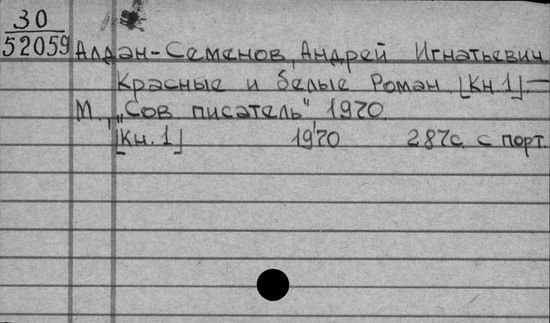 30
52059
Алдан-Семенов, Андрей Игнатьевич.
Красные и белые Роман. [Кн. 1] —
М., "Сов писатель" 1970.
[Кн. 1] 1970 287с. с порт.